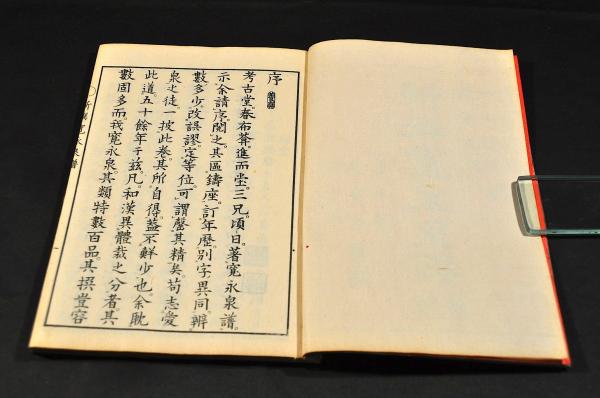 序
考古堂。春布菴進而堂三兄。頃日。著寛永泉譜。
示余請序。閲之。其區鑄座。訂年歷。別字異同。辨
數多少。改誤謬。定等位。可謂罄其精矣。苟志愛
泉之徒一披此卷。其所自得。蓋不鮮少也。余耽
此道。五十餘年于茲。凡和漢異體裁之分者。其
數固多。而我寛永泉。其類特數百品。其撰豈容